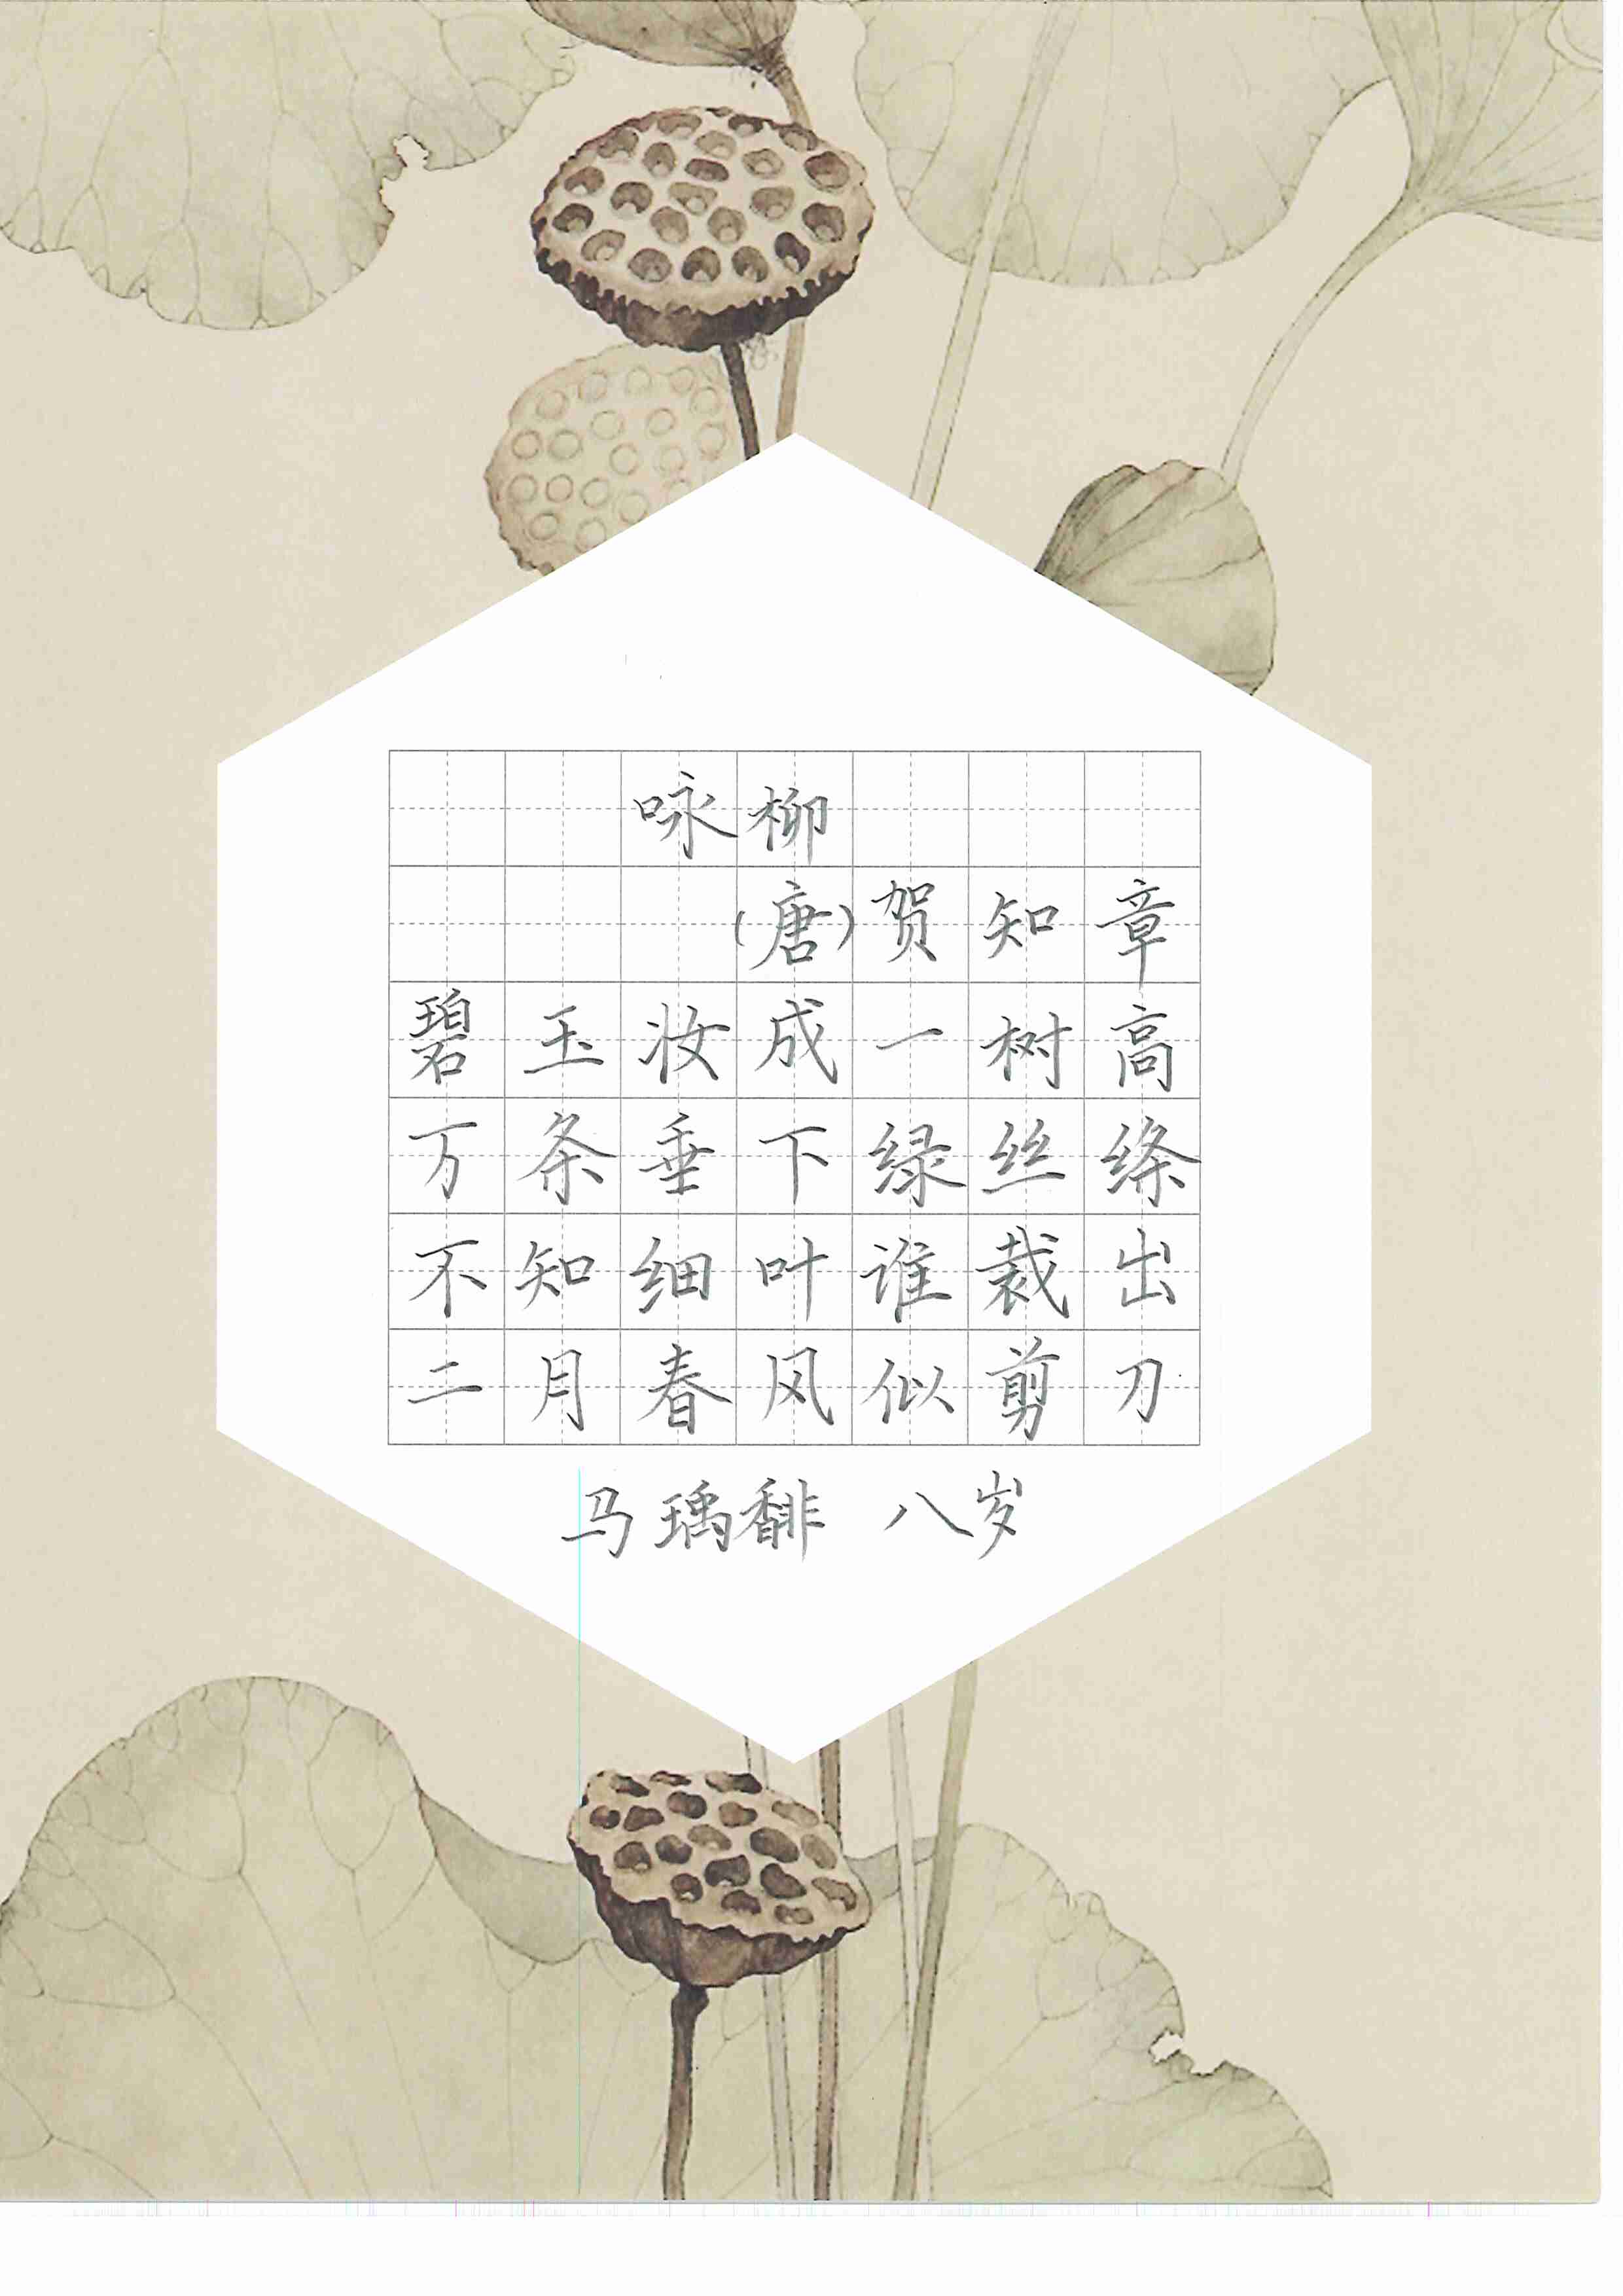 咏柳
(唐)贺知章
碧玉妆成一树高
万条垂下绿丝绦
不知细叶谁裁出
二月春风似剪刀
马瑀馡 八岁